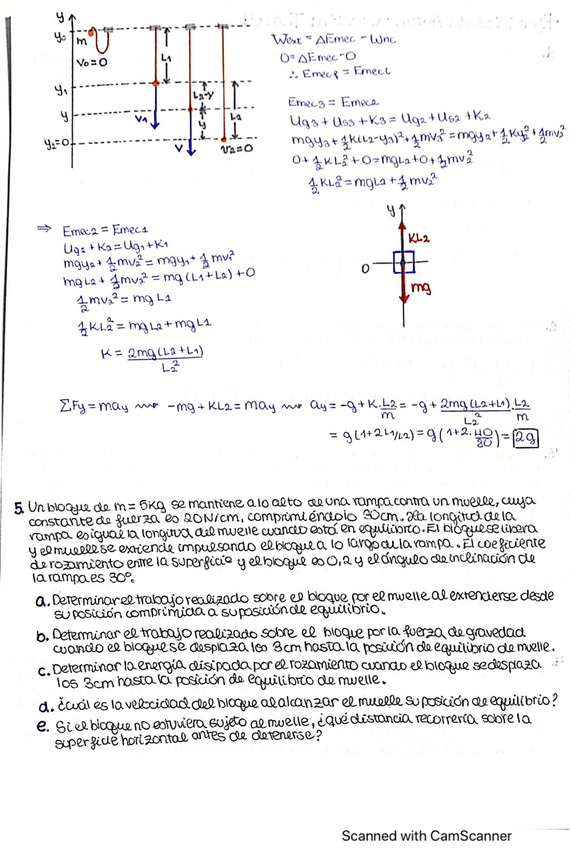 y
y₀
m
V₀=0
L1
y1
L2-y
L2
y
y
V1
V
y2=0
V2=0
Wext = ΔEmec - Wnc
0=ΔEmec-0
∴ Emecf = Emeci
Emec3 = Emec2
Ug3 + Us3 + K3 = Ug2 + Us2 + K2
mgy3 + 1/2 k(L2-y3)² + 1/2 mv3² = mgy2 + 1/2 Ky2² + 1/2 mv2²
0 + 1/2 KL2² + 0 = mgL2 + 0 + 1/2 mv2²
1/2 KL2² = mgL2 + 1/2 mv2²
⇒ Emec2 = Emec1
Ug2 + K2 = Ug1 + K1
mgy2 + 1/2 mv2² = mgy1 + 1/2 mv1²
mgL2 + 1/2 mv2² = mg(L1+L2) + 0
1/2 mv2² = mgL1
1/2 KL2² = mgL2 + mgL1
K = 2mg(L2+L1)/L2²
y
KL2
0
mg
ΣFy = may ⟿ -mg + KL2 = may ⟿ ay = -g + K·L2/m = -g + 2mg(L2+L1)/L2² · L2/m
= g(1+2L1/L2) = g(1+2·40/80) = 2g
5. Un bloque de m= 5Kg se mantiene a lo alto de una rampa contra un muelle, cuya
constante de fuerza es 20N/cm, comprimiéndolo 30cm. La longitud de la
rampa es igual la longitud del muelle cuando está en equilibrio. El bloque se libera
y el muelle se extiende impulsando el bloque a lo largo de la rampa. El coeficiente
de rozamiento entre la superficie y el bloque es 0,2 y el ángulo de inclinación de
la rampa es 30º.
a. Determinar el trabajo realizado sobre el bloque por el muelle al extenderse desde
su posición comprimida a su posición de equilibrio.
b. Determinar el trabajo realizado sobre el bloque por la fuerza de gravedad
cuando el bloque se desplaza los 3cm hasta la posición de equilibrio de muelle.
c. Determinar la energía disipada por el rozamiento cuando el bloque se desplaza
los 3cm hasta la posición de equilibrio de muelle.
d. ¿Cuál es la velocidad del bloque al alcanzar el muelle su posición de equilibrio?
e. Si el bloque no estuviera sujeto al muelle, ¿qué distancia recorrería sobre la
superficie horizontal antes de detenerse?
Scanned with CamScanner